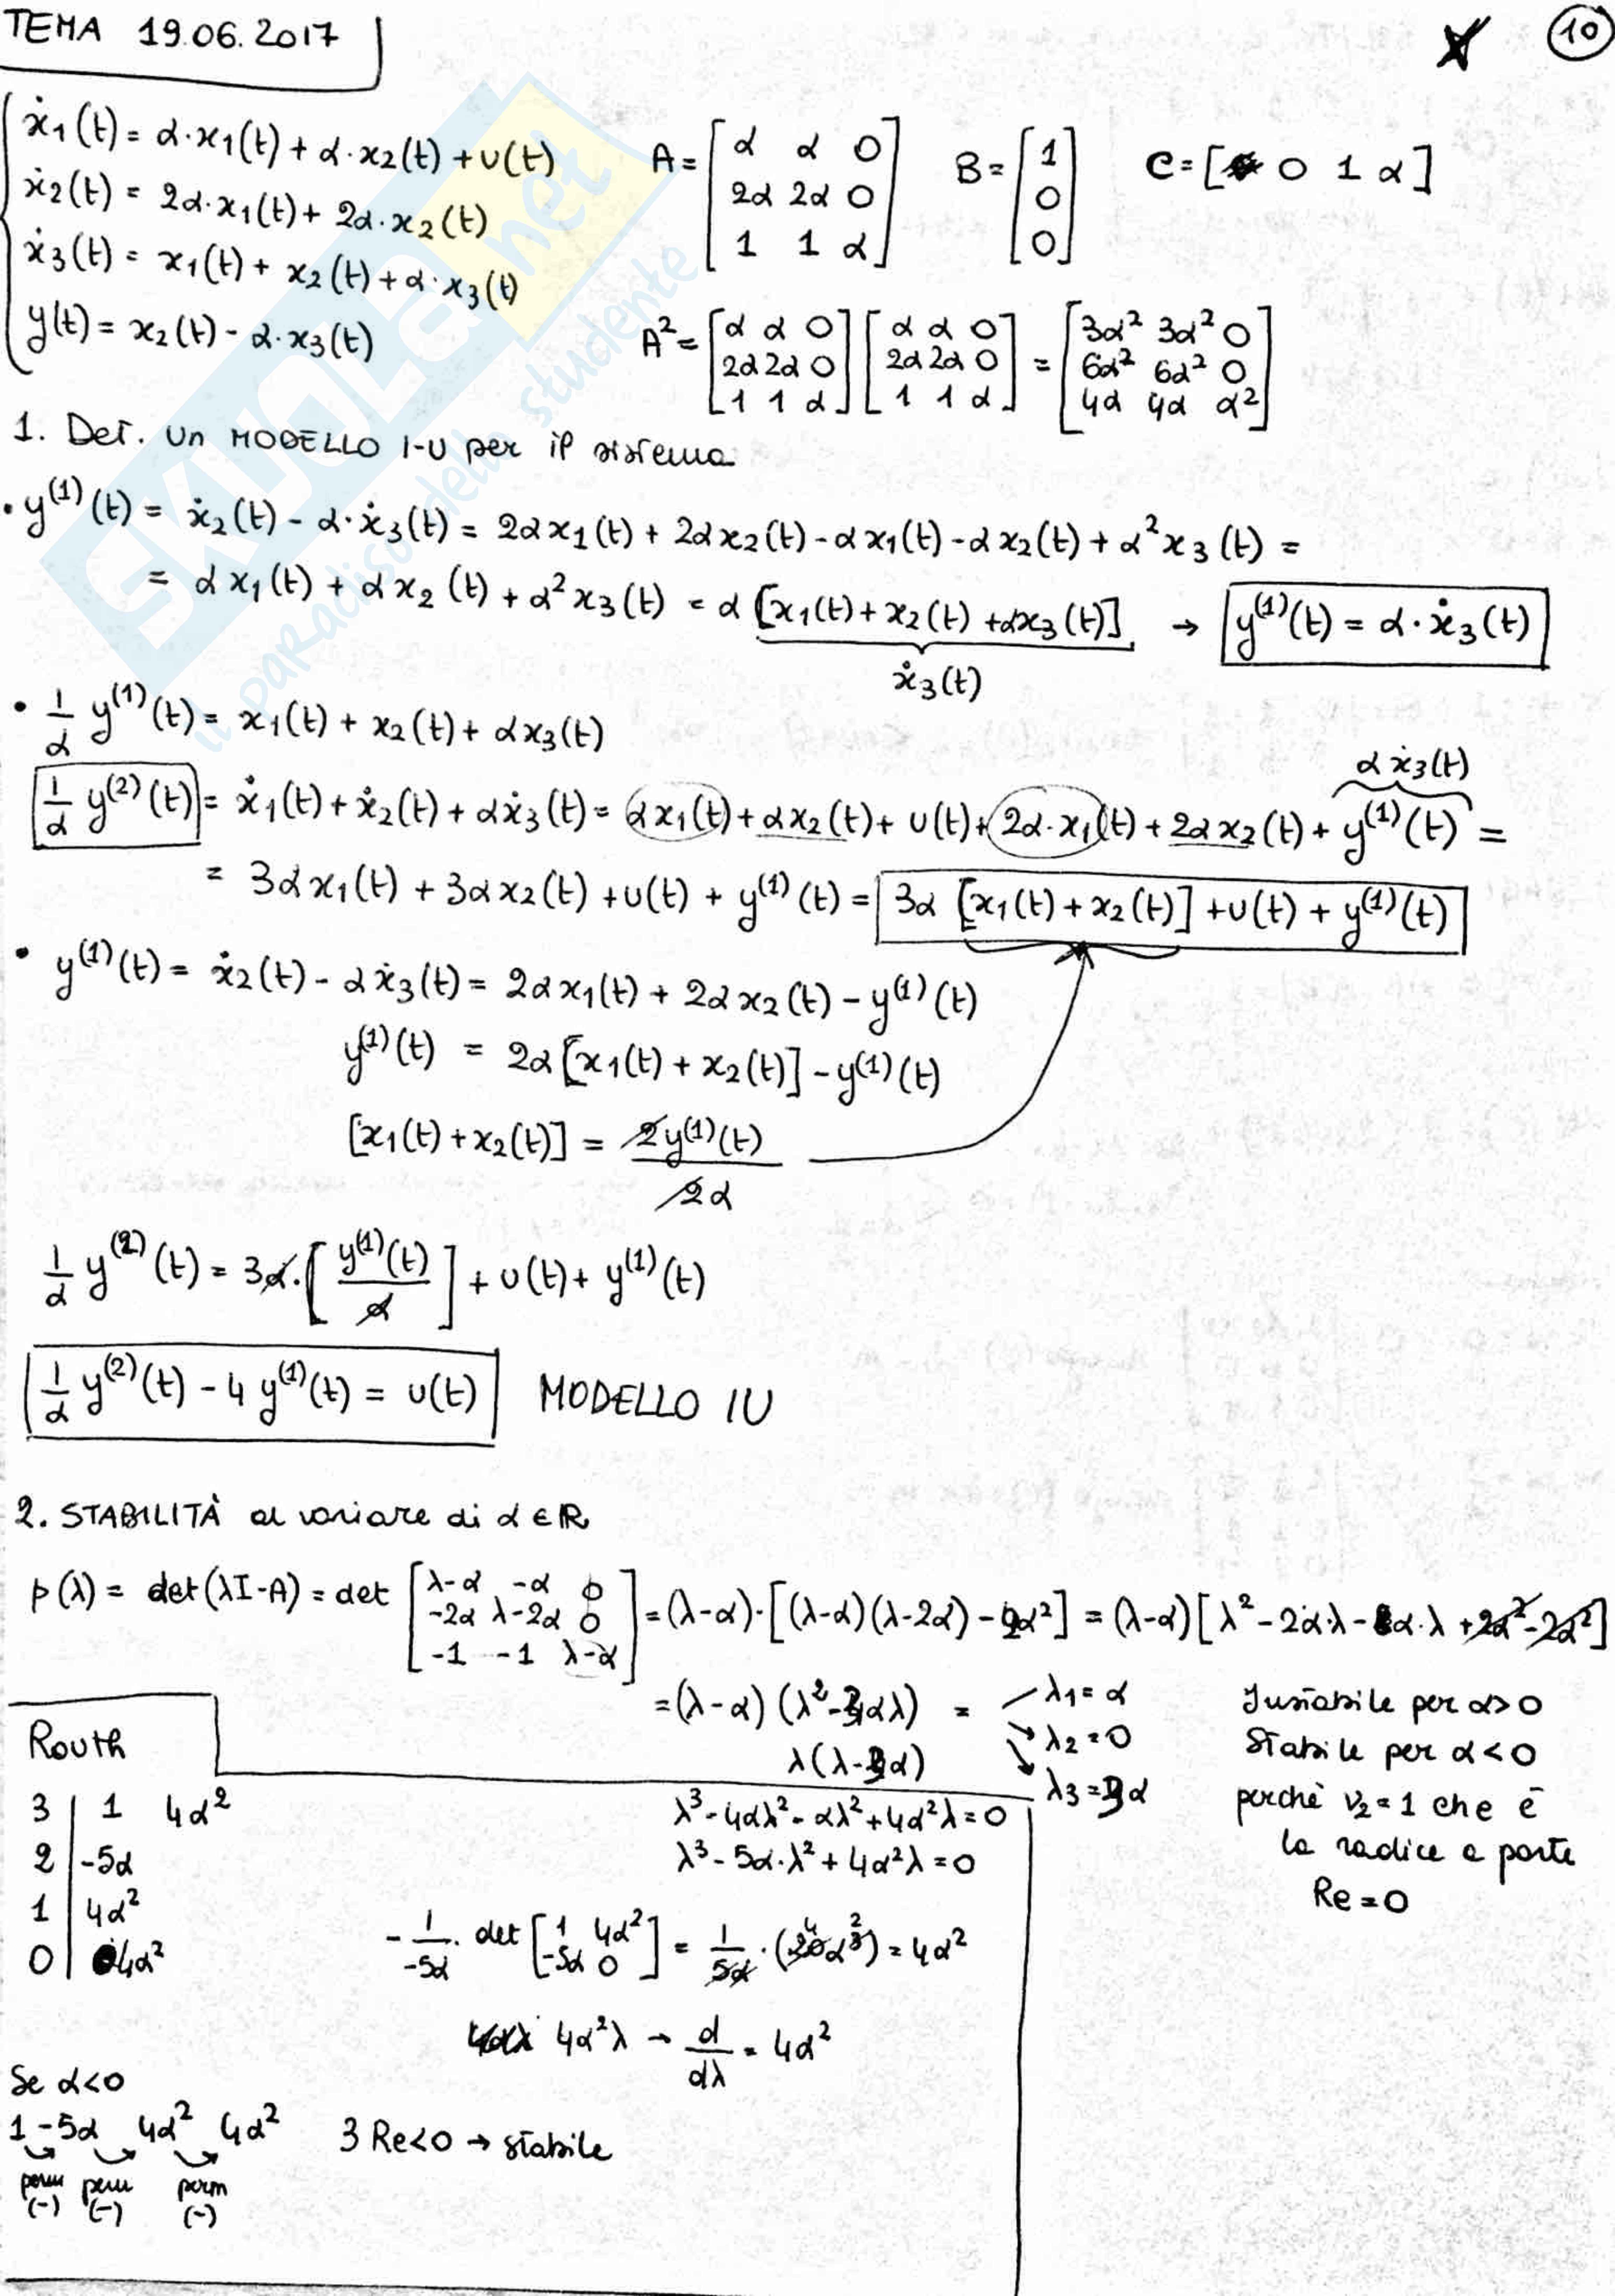 TEMA 19.06.2017
10
ẋ₁(t) = α·x₁(t) + α·x₂(t) + u(t)
ẋ₂(t) = 2α·x₁(t) + 2α·x₂(t)
ẋ₃(t) = x₁(t) + x₂(t) + α·x₃(t)
y(t) = x₂(t) - α·x₃(t)
A = [α α 0
2α 2α 0
1 1 α]
B = [1
0
0]
C = [0 1 α]
A² = [α α 0; 2α 2α 0; 1 1 α] [α α 0; 2α 2α 0; 1 1 α] = [3α² 3α² 0; 6α² 6α² 0; 4α 4α α²]
1. Det. un MODELLO I-U per il sistema
• y⁽¹⁾(t) = ẋ₂(t) - α·ẋ₃(t) = 2αx₁(t) + 2αx₂(t) - αx₁(t) - αx₂(t) + α²x₃(t) =
= αx₁(t) + αx₂(t) + α²x₃(t) = α [x₁(t) + x₂(t) + αx₃(t)] → y⁽¹⁾(t) = α·ẋ₃(t)
ẋ₃(t)
• 1/α y⁽¹⁾(t) = x₁(t) + x₂(t) + αx₃(t)
αẋ₃(t)
1/α y⁽²⁾(t) = ẋ₁(t) + ẋ₂(t) + αẋ₃(t) = αx₁(t) + αx₂(t) + u(t) + 2α·x₁(t) + 2αx₂(t) + y⁽¹⁾(t) =
= 3αx₁(t) + 3αx₂(t) + u(t) + y⁽¹⁾(t) = 3α [x₁(t) + x₂(t)] + u(t) + y⁽¹⁾(t)
• y⁽¹⁾(t) = ẋ₂(t) - αẋ₃(t) = 2αx₁(t) + 2αx₂(t) - y⁽¹⁾(t)
y⁽¹⁾(t) = 2α[x₁(t) + x₂(t)] - y⁽¹⁾(t)
[x₁(t) + x₂(t)] = 2y⁽¹⁾(t) / 2α
1/α y⁽²⁾(t) = 3α·[y⁽¹⁾(t)/α] + u(t) + y⁽¹⁾(t)
1/α y⁽²⁾(t) - 4y⁽¹⁾(t) = u(t) MODELLO IU
2. STABILITÀ al variare di α∈R
p(λ) = det(λI-A) = det [λ-α -α 0; -2α λ-2α 0; -1 -1 λ-α] = (λ-α)·[(λ-α)(λ-2α) - 2α²] = (λ-α)[λ² - 2α·λ - α·λ + 2α² - 2α²]
= (λ-α)(λ²-3αλ) = λ₁ = α
λ(λ-3α)
λ₂ = 0
λ₃ = 3α
Instabile per α>0
Stabile per α<0
perchè ν₂=1 che è
la radice a parte
Re=0
Routh
3 | 1 4α²
2 | -5α
1 | 4α²
0 | 4α²
λ³ - 4αλ² - αλ² + 4α²λ = 0
λ³ - 5α·λ² + 4α²λ = 0
- 1/-5α · det [1 4α²; -5α 0] = 1/5α · (20α³) = 4α²
4α²λ → d/dλ = 4α²
Se α<0
1 -5α 4α² 4α²
perm perm perm
(-) (-) (-)
3 Re<0 → stabile
SKUOLA.net
il paradiso dello studente